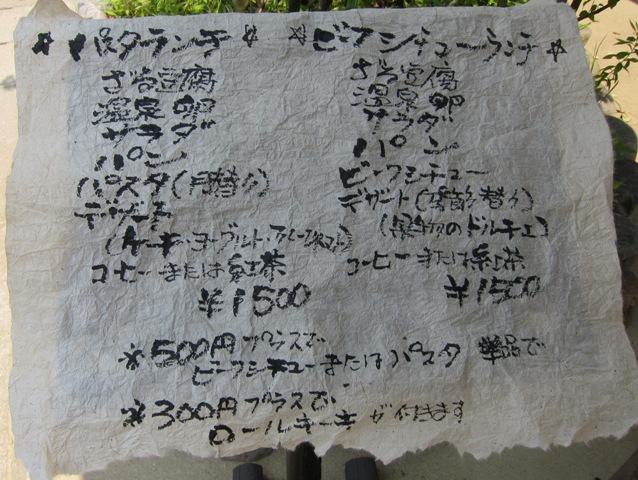 ☆パスタランチ☆
ざる豆腐
温泉卵
サラダ
パン
パスタ(月替り)
デザート
(ケーキ・ヨーグルト・
コーヒーまたは紅茶
¥1500
☆ビーフシチューランチ☆
ざる豆腐
温泉卵
サラダ
パン
ビーフシチュー
デザート(替り)
(果物のドルチェ)
コーヒーまたは紅茶
¥1500
※500円プラスで
ビーフシチューまたはパスタ 単品で
※300円プラスで
ロールケーキが付きます